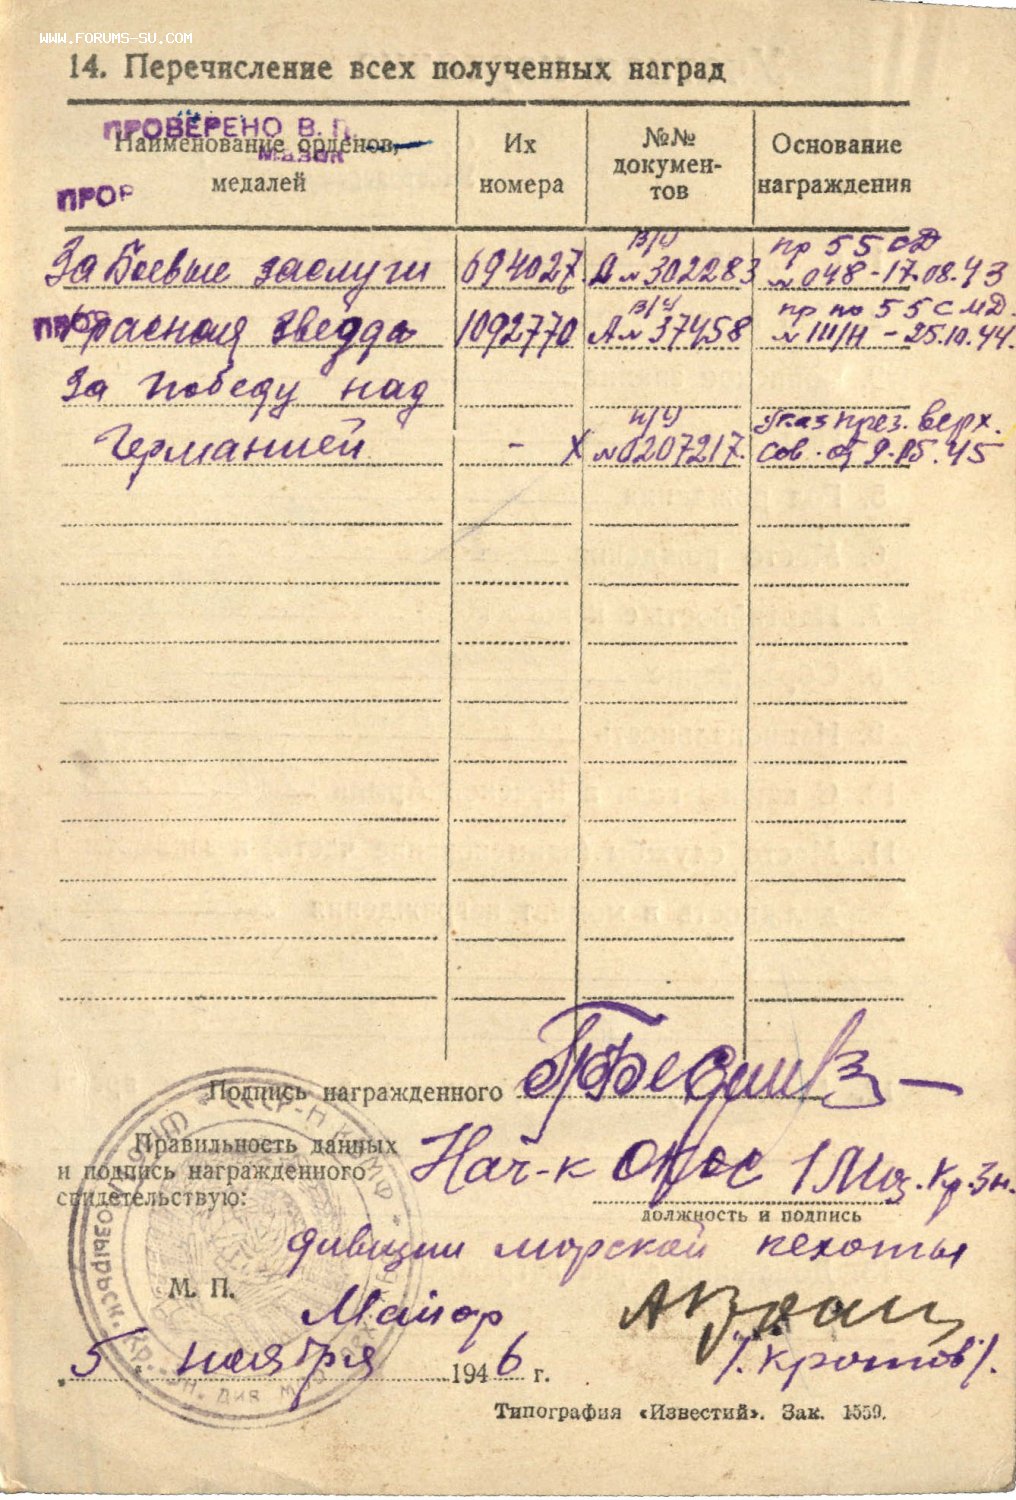 WWW.FORUMS-SU.COM
14. Перечисление всех полученных наград
ПРОВЕРЕНО В. П.
Наименование орденов, медалей
Их номера
№№ докумен-тов
Основание награждения
ПРОР
За Боевые заслуги 694027 в/ч А № 302283 пр 55 СД № 048 - 17.08.43
Красная звезда 1092770 в/ч А № 37458 пр по 55 С МД. № III/Н - 25.10.44.
За Победу над
Германией - Х п/ч № 0207217. Указ през. Верх. Сов. от 9.05.45
Подпись награжденного
Правильность данных
и подпись награженного
свидетельствую:
Нач-к 1 Моз. Кр.Зн.
должность и подпись
дивизии морской пехоты
М. П.
Майор
/Кротов/.
5 ноября 1946 г.
Типография «Известий». Зак. 1559.